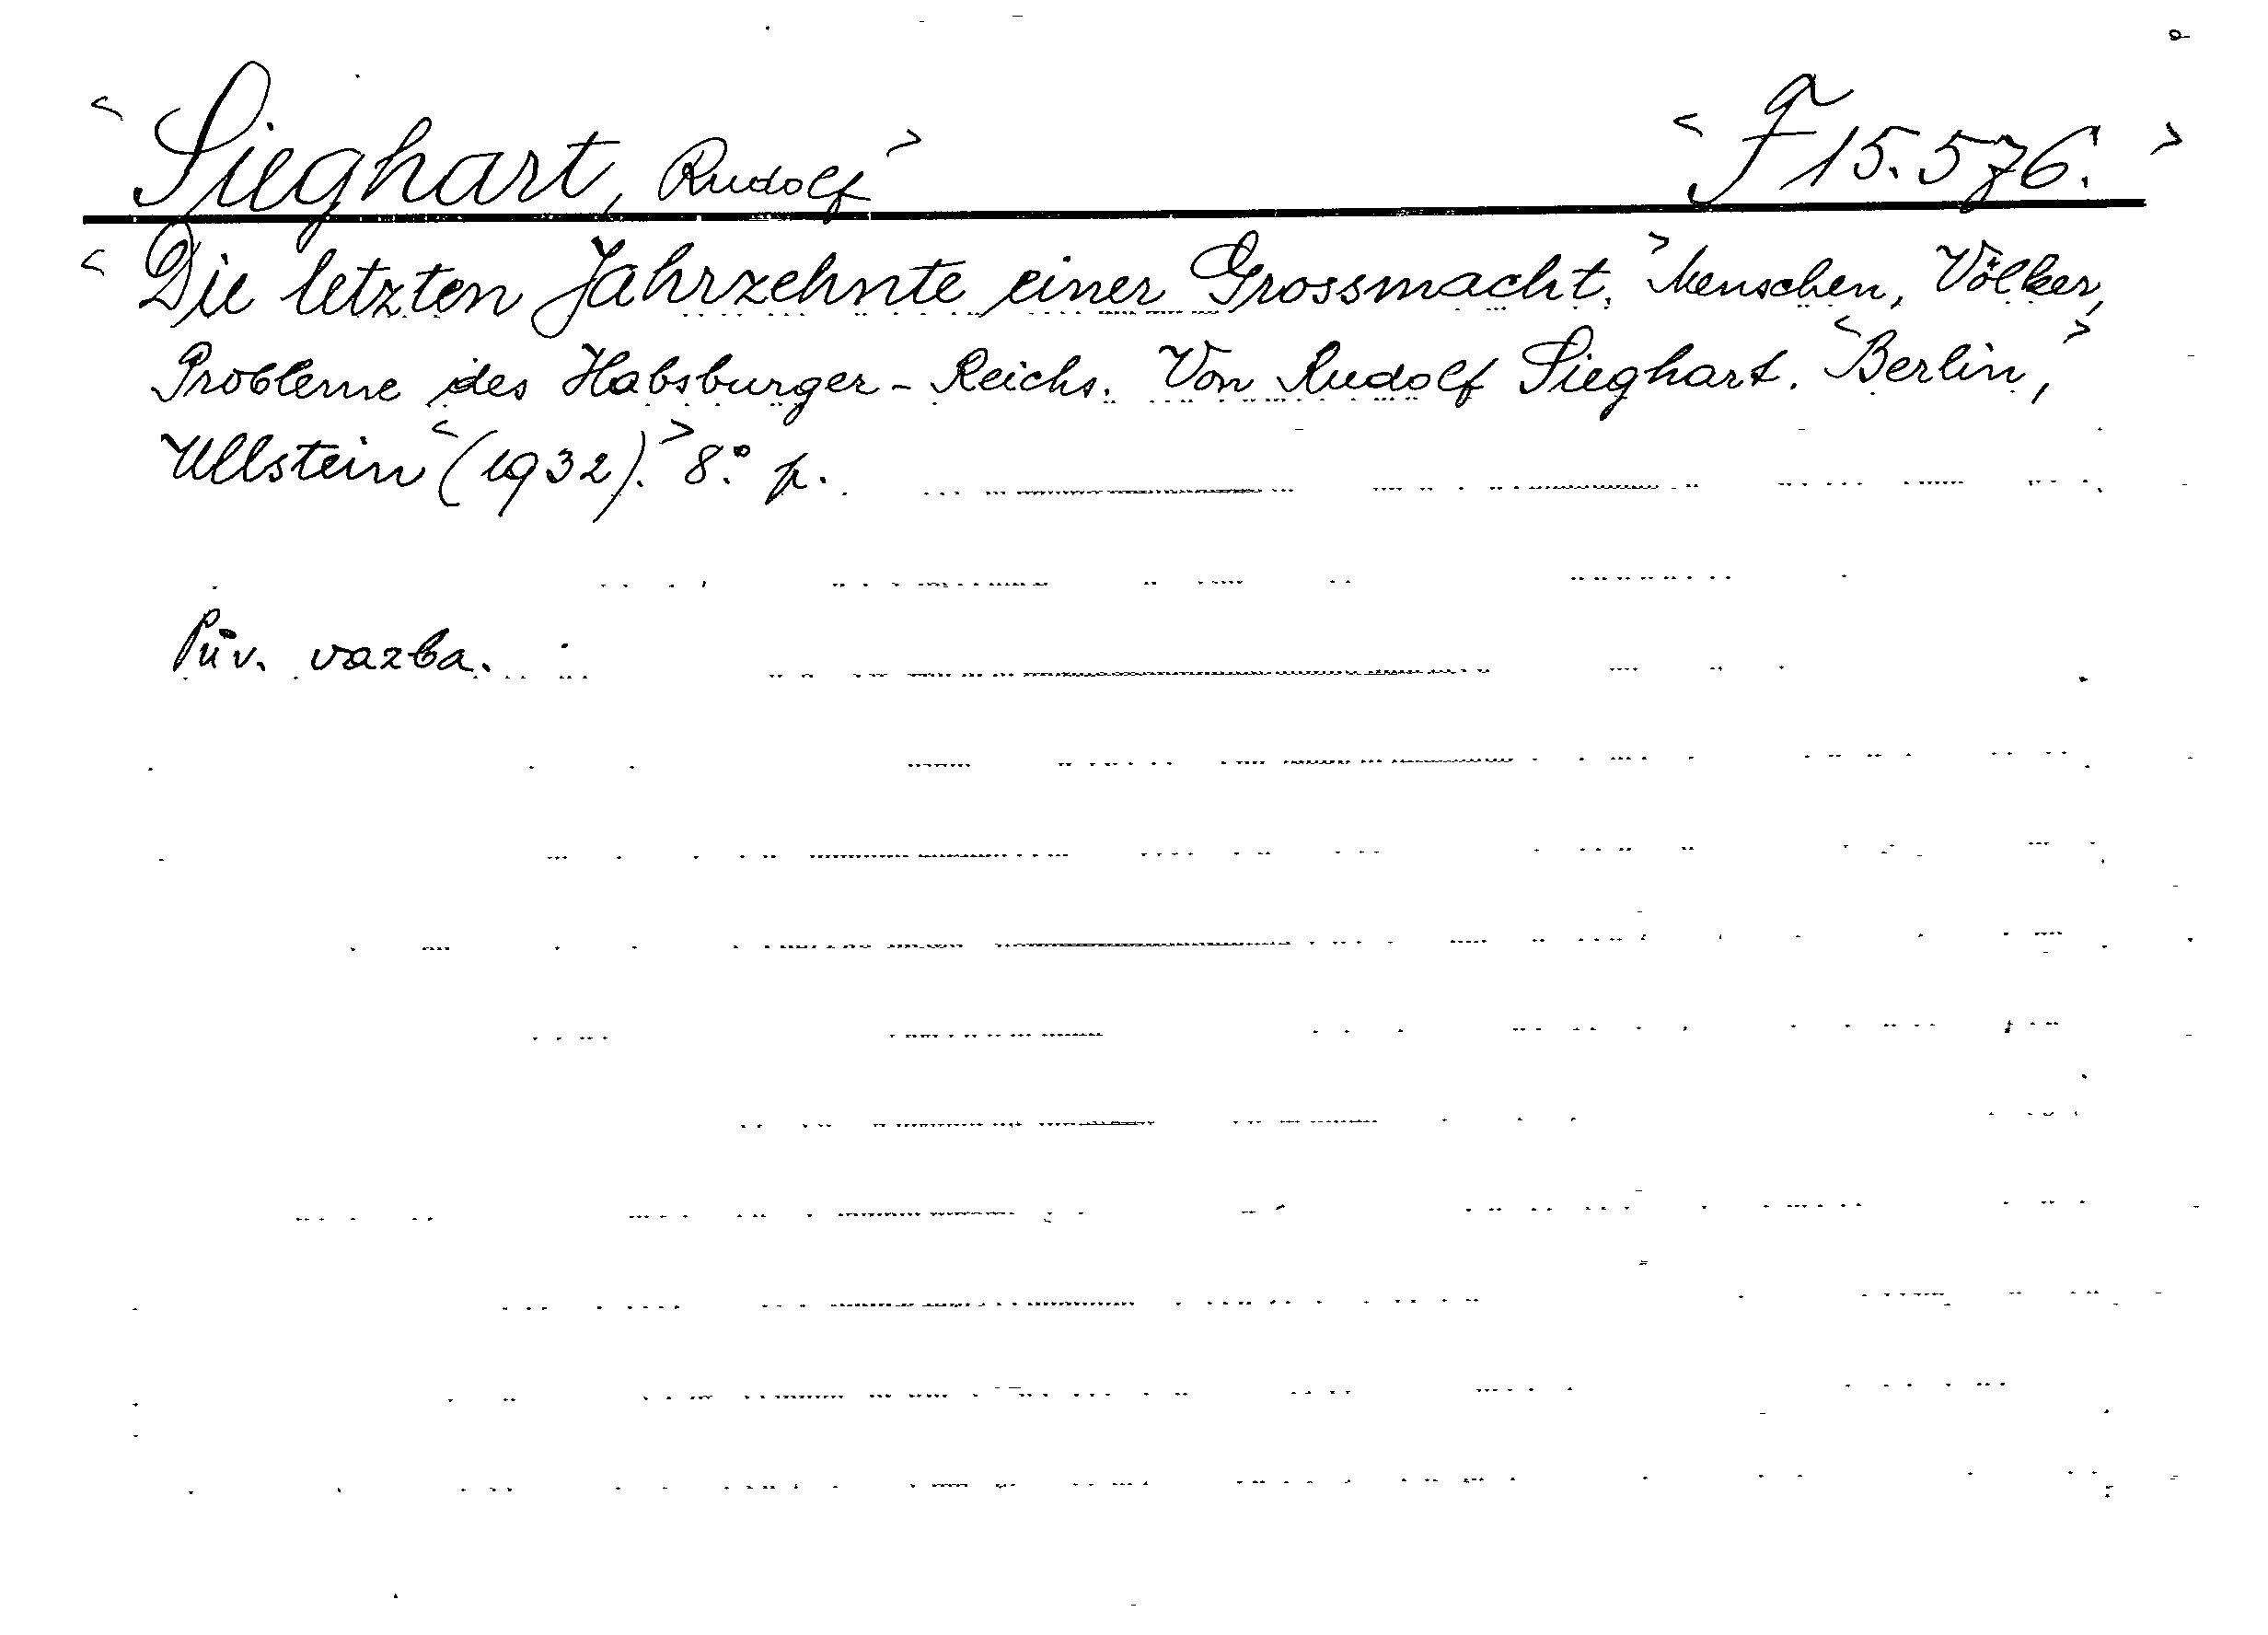 < Sieghart, Rudolf > < F 15.576. >
< Die letzten Jahrzehnte einer Grossmacht. > Menschen, Völker,
Probleme des Habsburger-Reichs. Von Rudolf Sieghart. < Berlin, >
Ullstein < (1932). > 8.° p.
Pův. vazba.